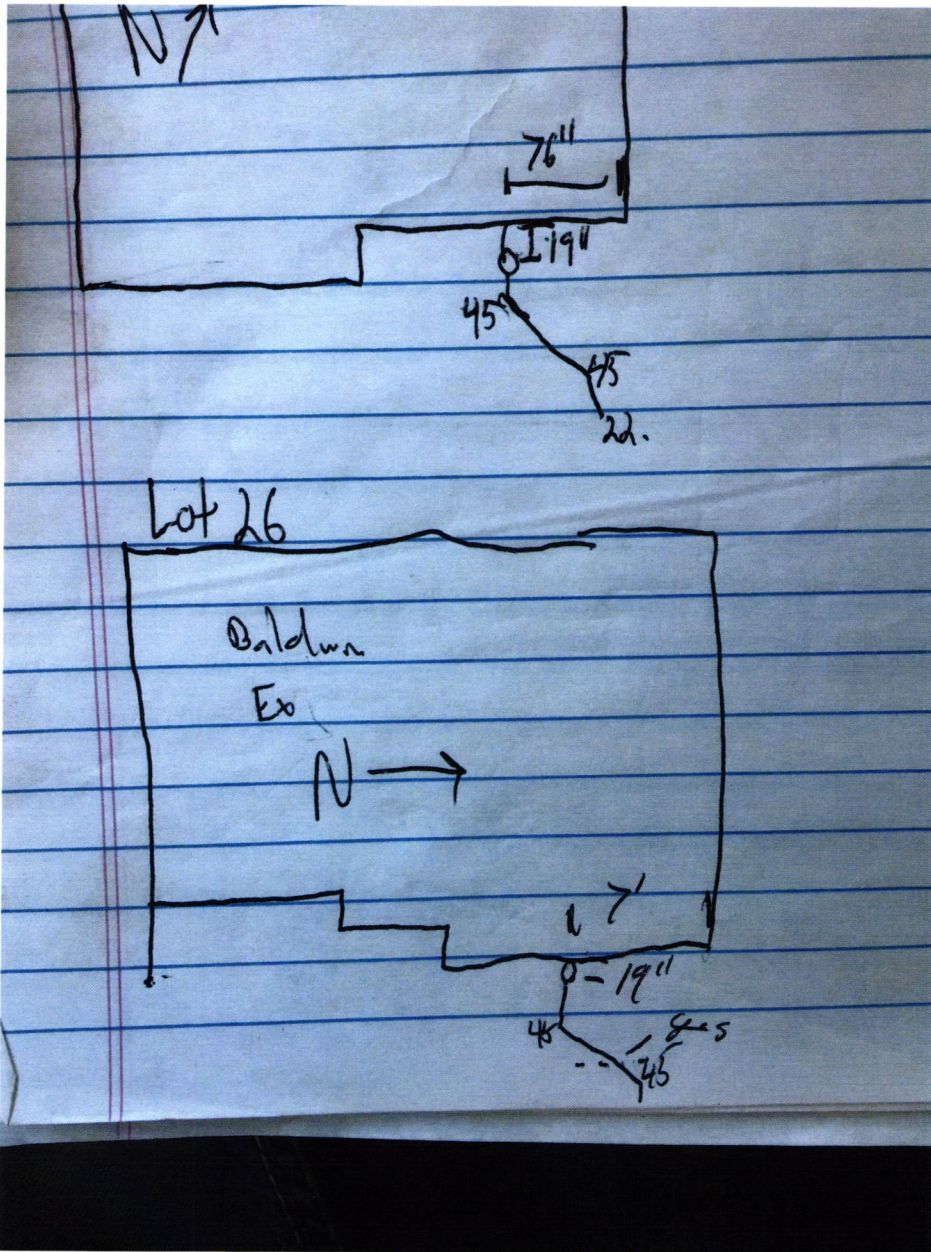 N
76"
19"
45
45
22.
Lot 26
Baldwin
Ex
N
7'
19"
45
gas
45